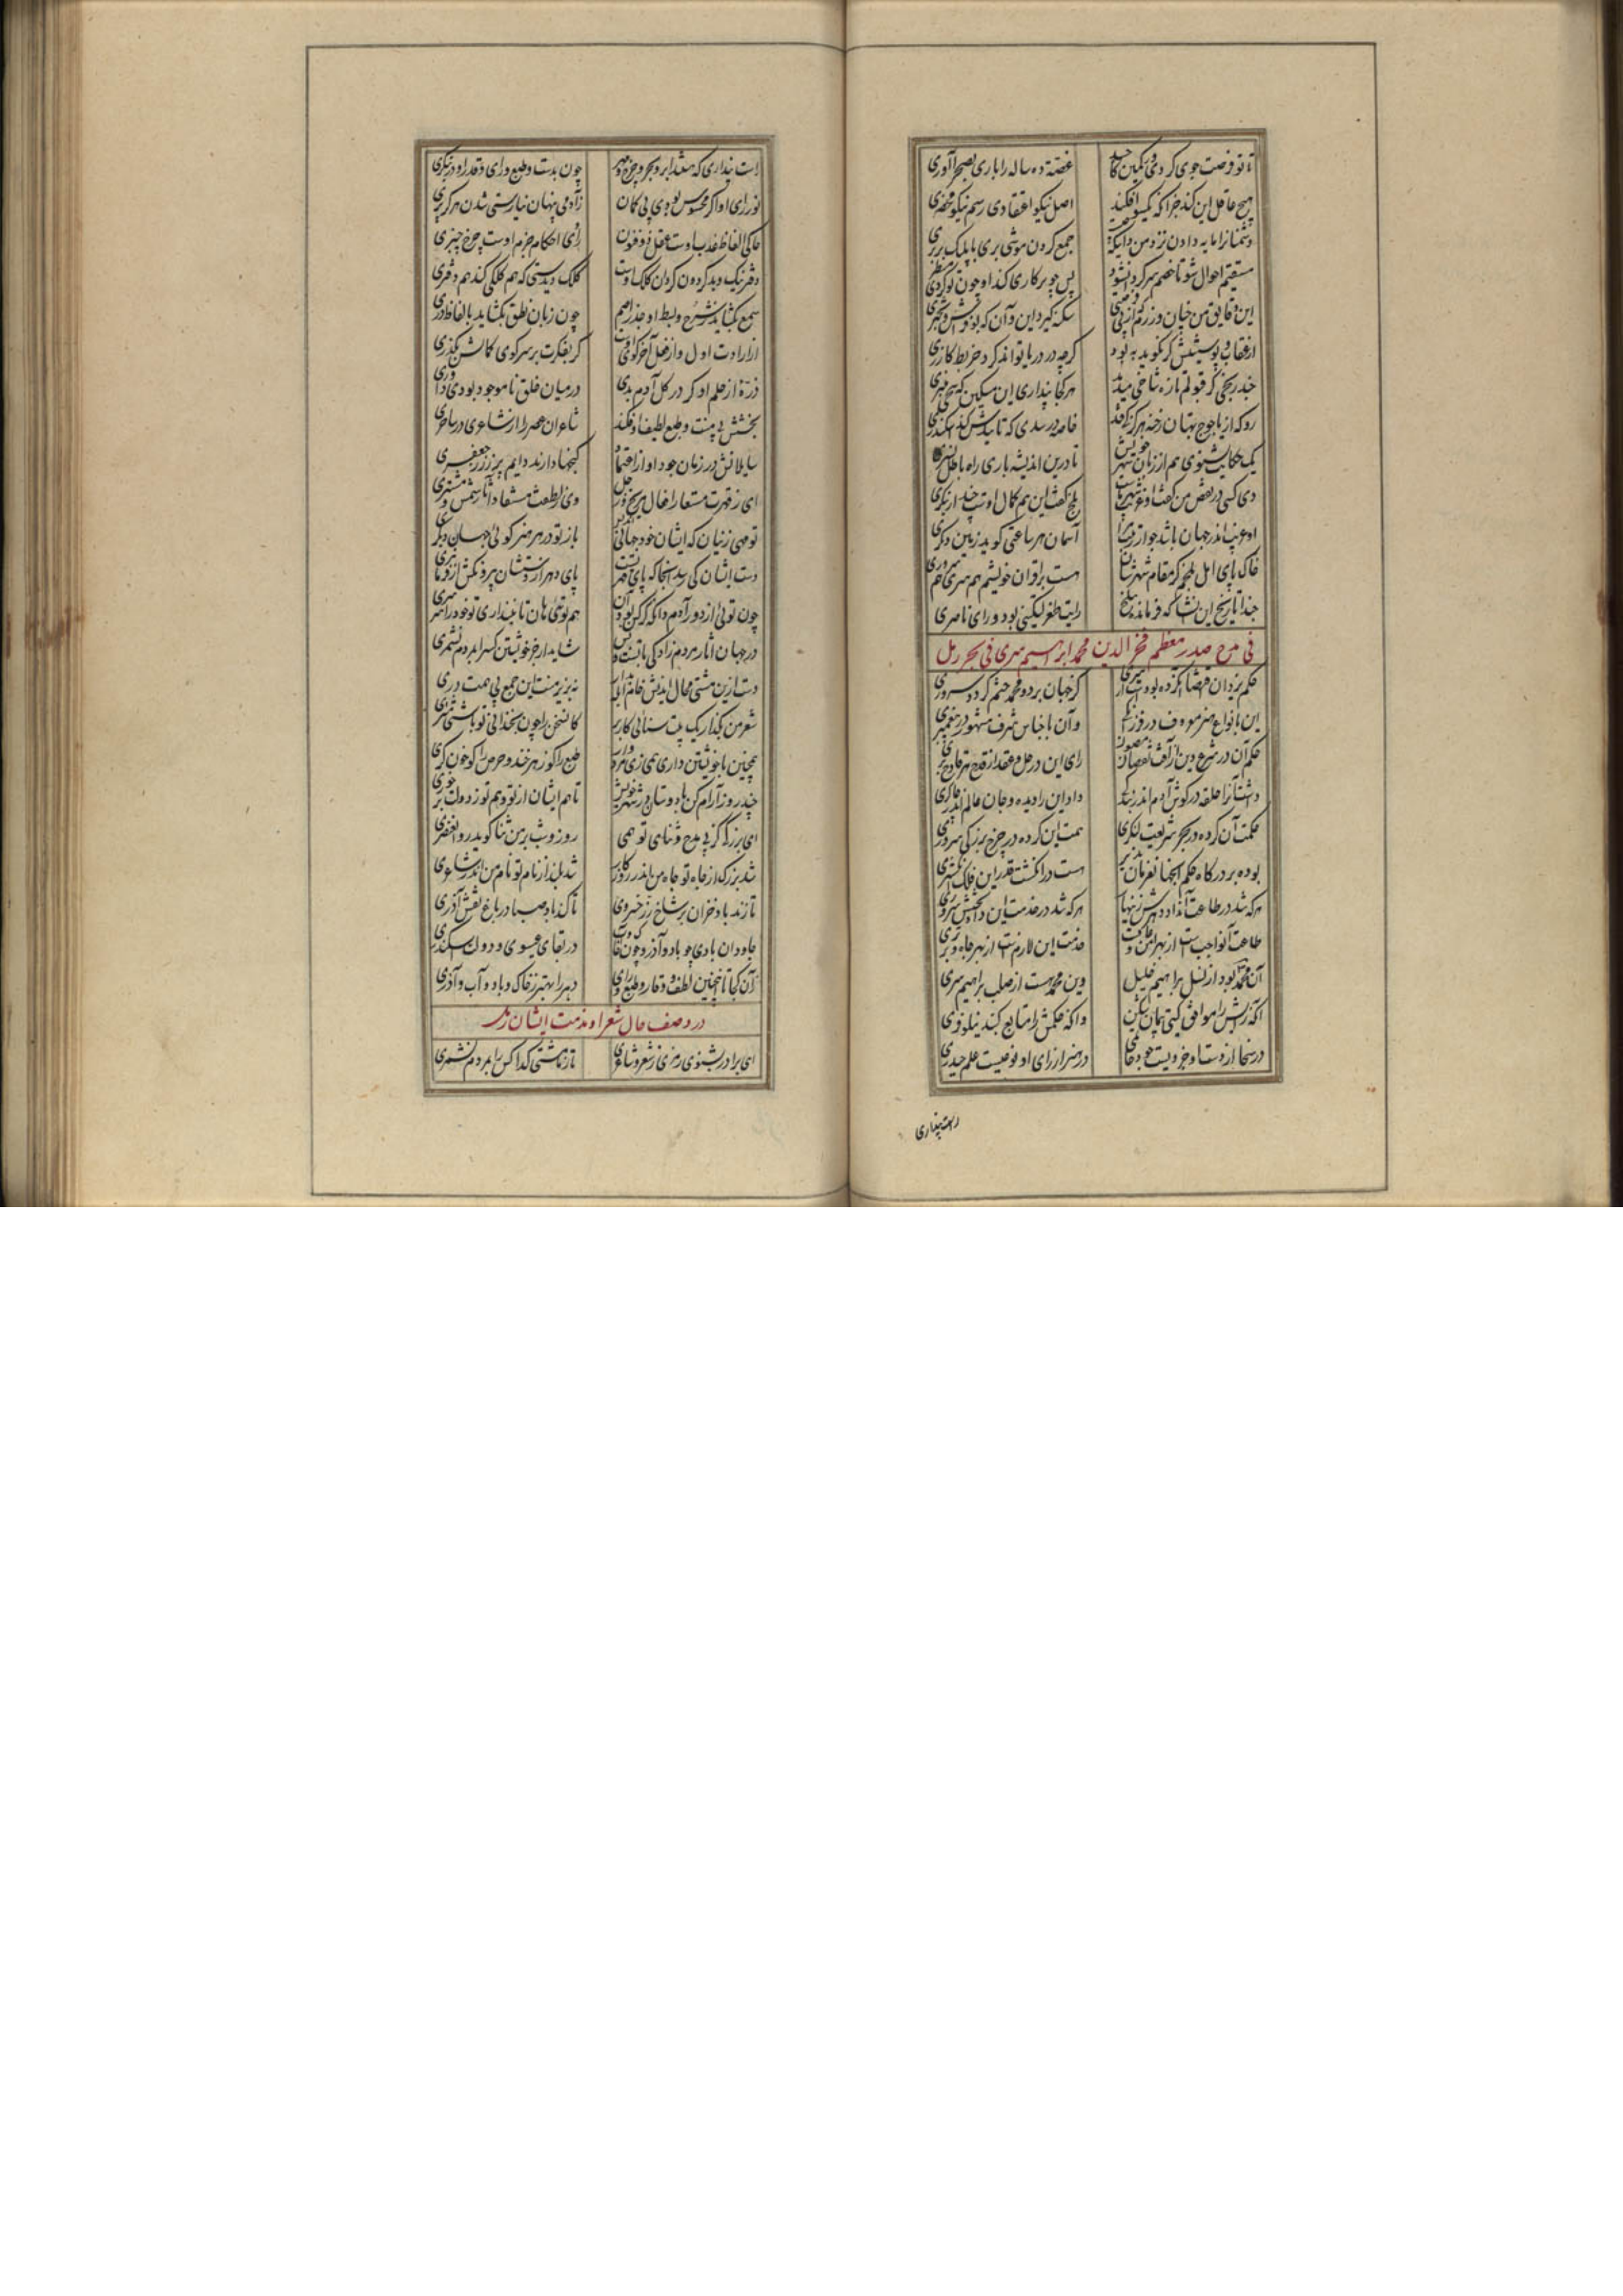 تا تو فرصت جوی کردی در کمین کار حسد غصّه ده ساله را باری بصحرا آوری
هیچ عاقل این کند جز آنکه یکسو افکند اصل نیکو اعتقادی رسم نیکو محضری
جمع کردن موشی بری با پلنگ بربری
مستقیم احوال شو تا خصم سرگردان شود پس چو پرکاری کند او چون تو کردی مسطری
سکته گیرد این و آن که بوفراش و بحتری
گرچه در دریا تواند کرد خربط گازری
چند رنجی کز قبولم تازه شاخی میدمد هر کجا پنداری ای مسکین که بیخی میبری
رو که از یاجوج بهتان رخنه هرگز کی فتد خاصه در سدی که تاییدش کند اسکندری
یک حکایت بشنوی هم از زبان شهر خویش تا درین اندیشه باری راه باطل نسپری
دی کسی در نقص من گفت او غریب شهر ماست بلخ گفت این هم کمال اوست چند ار بنگری
او غریب اندر جهان باشد چو از تو برتر است آسمان هر ساعتی گوید زمین دیگری
خاک پای اهل بلخم کز مقام شهرشان هست بر اقران خویشم هم سری هم سروری
حبذا تاریخ این انشا که فرمانده ببلخ رایت طغرلتکینی بود و رای ناصری
فی مدح صدر معظم فخر الدین محمد ابراهیم سری فی بحر رمل
حکم یزدان اقتضا آن کرده بود از سروری کز جهان بر دو محمد ختم گردد سروری
این بانواع هنر معروف در فرزانگی وآن باجناس شرف مشهور در پیغمبری
حکم آن در شرع و دین از آفت نقصان مصون رای این در حل و عقد از قدح هر قادح بری
داشت آنرا حلقه در گوش آدم اندر بندگی داد این را دیده و جان عالم اندر چاکری
حکمت آن کرده در بحر شریعت لنگری همت این کرده در چرخ بزرگی محوری
بوده بر درگاه حکم آنجهان فرمان پذیر هست در انگشت قدر این فلک انگشتری
هرکه شد در طاعت آن داد دهرش زینهار هرکه شد در خدمت این داد بختش سروری
طاعت آن واجبست از بهر امن و عافیت خدمت این لازمست از بهر جاه و برتری
آن محمد بود از نسل براهیم خلیل وین محمد هست از صلب براهیم سری
آنکه رایش را موافق گیتی پیمان شکن وآنکه حکمش را متابع گنبد نیلوفری
در سخا از دست او جزویست جود حاتمی در هنر از رای او نوعیست علم حیدری
راست پنداری
راست پنداری که هستند ابر و بحر و چرخ و مهر چون بدست و طبع و رای و قدر او درنگری
نور رای او اگر محسوس بودی بی گمان ز آدمی پنهان نیارستی شدن هرگز پری
حاکی الفاظ عذب اوست عقل ذوفنون راوی احکام جزم اوست چرخ چنبری
دفتر نیک و بد گردون گردان کلک اوست کلک دیدستی که هم کلکی کند هم دفتری
سمع بگشاید ز شرح و بسط او جذر اصم چون زبان نطق بگشاید بالفاظ دری
گر بفکرت بر سر کوی کمالش بگذری
ذرّه از حلم او گر در گل آدم بدی در میان خلق ناموجود بودی داوری
بخشش بی منت و طبع لطیف او فکند شاعران عصر را از شاعری در ساحری
سایلانش در زمان جود او از اعتماد گنجها دارند دایم پر زر جعفری
ای ز قهرت مستعار افعال مریخ و زحل وی ز لطفت مستفاد آثار شمس و مشتری
تو جهی زیشان که ایشان خود جهانی دیگرند باز تو در هر هنر گوئی جهان دیگری
دست ایشان کی رسد آنجا که پای قدر تست پای دهر از دستشان بیرون کن
چون توئی از دور آدم هم توئی هان تا نپنداری تو خود را سرسری
در جهان آثار مردم زادگی با تست و بس شاید ار جز خویشتن کس را بمردم نشمری
دست ازین مشتی محال اندیش خام ابله بدار نه بزیر منت این جمع بی همت دری
شعر من بگذار یک بیت سنائی کار بند کان سخن را چون سخندانی تو باشد مشتری
همچنین با خویشتن داری همی زی مردوار طبع را گو زهر خند و حرص را گو خون گری
چند روز آرام کن با دوستان در شهر خویش تا هم ایشان از تو و هم تو ز دولت بر خوری
ای بزرگی کز پی مدح و ثنای تو همی روز و شب بر من ثنا گوید روان عنصری
شد بزرگ از جاه تو جاه من اندر روزگار شد بلند از نام تو نام من اندر شاعری
تا زند باد خزان بر شاخ زر خبروی تا کند باد صبا در باغ نقش آذری
جاودان بادی چو باد و آذر و چون خاک و آب در بقای عیسوی و دولت اسکندری
زآن کجا تا اینچنین لطف و وقار و طبع و رای دهر را بهتر ز خاک و باد و آب و آذری
در وصف حال شعرا و مذمت ایشان رمل
ای برادر بشنوی رمزی ز شعر و شاعری تا ز ما مشتی گدا کس را بمردم نشمری